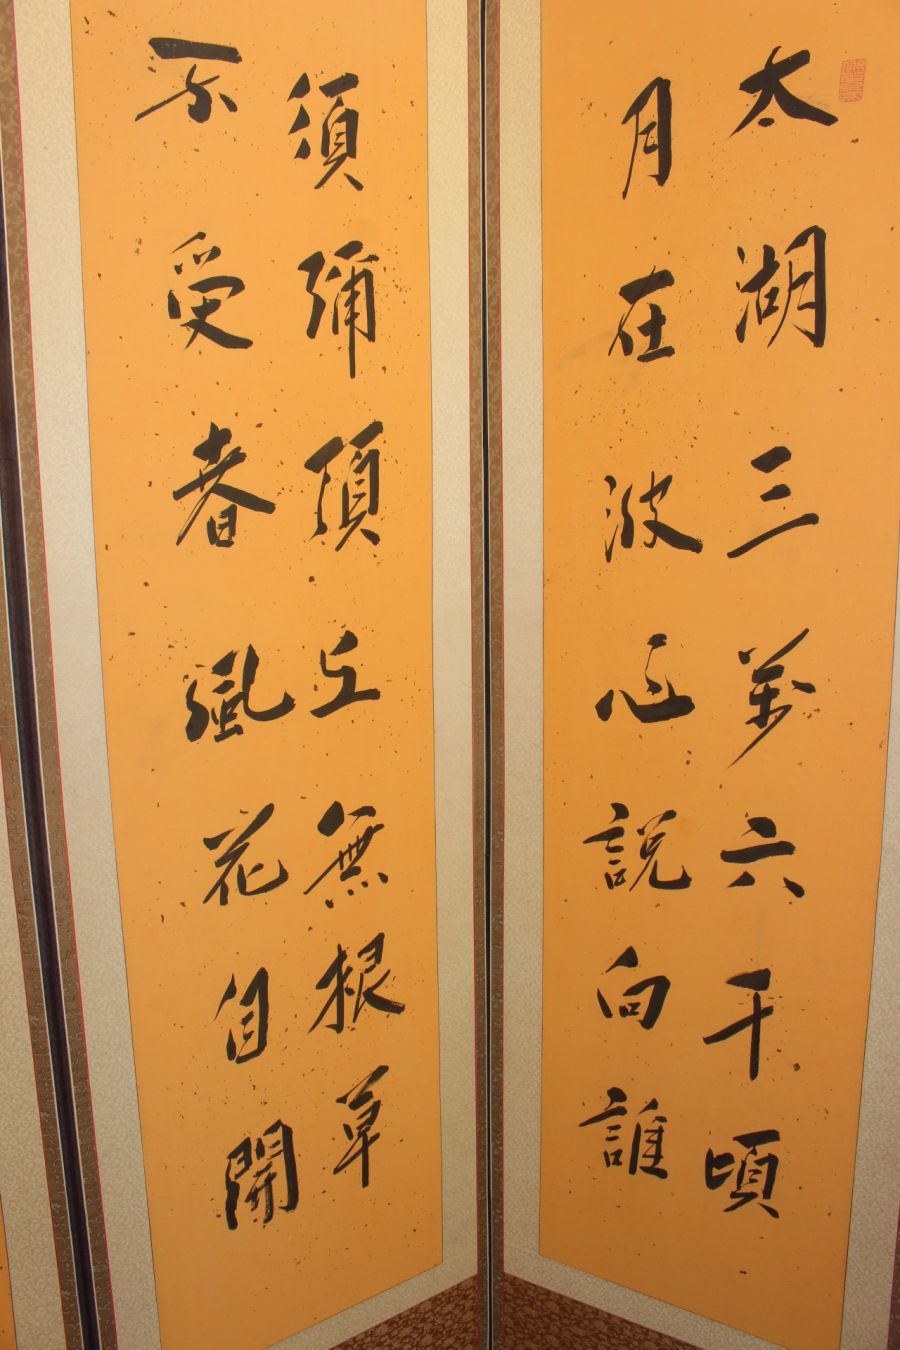 太湖三萬六千頃
月在波心說向誰
須彌頂上無根草
不受春風花自開